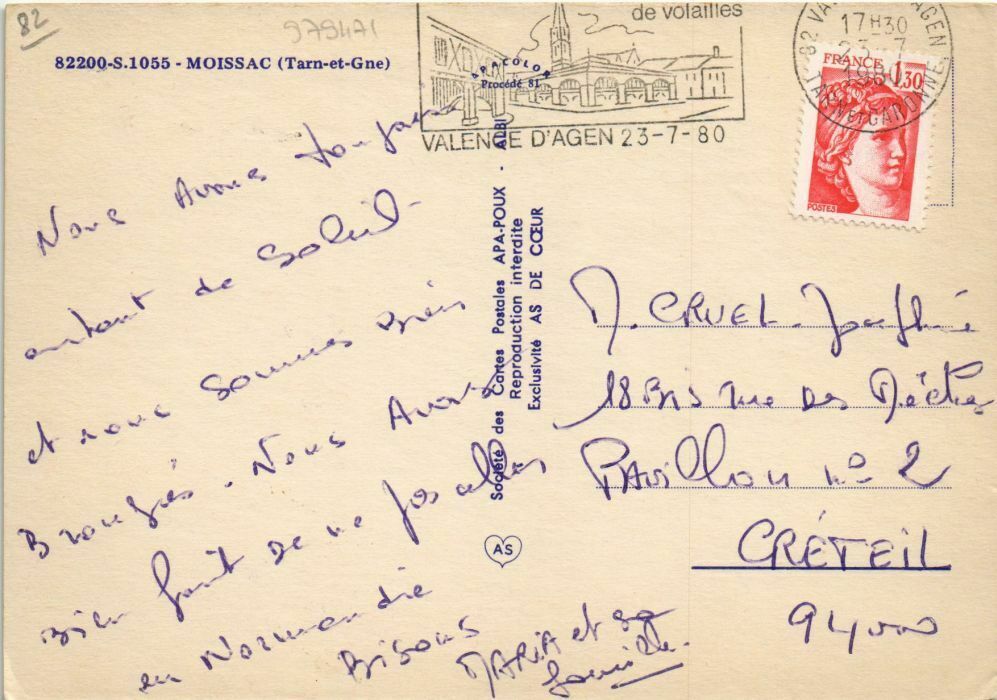 82
979471
82200-S.1055 - MOISSAC (Tarn-et-Gne)
APACOLOR
Procédé 81
de volailles
VALENCE D'AGEN 23-7-80
17H30
23-7
1980
TARN ET GARONNE
FRANCE 1,30
POSTES
Nous Avons toujours
autant de Soleil
et nous sommes Bien
Bronzés. Nous Avons
Bien fait de ne pas aller
en Normandie
Bisous
MARIA et sa
famille.
Société des Cartes Postales APA-POUX - ALBI
Reproduction interdite
Exclusivité AS DE CŒUR
AS
M. CRUEL Joséphine
18 Bis rue des Mèches
PAvillon n° 2
CRÉTEIL
94000